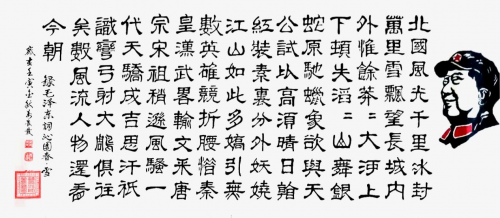 北國風光千里冰封
萬里雪飄望長城内
外惟餘莽二大河上
下頓失滔二山舞銀
蛇原馳蠟象欲與天
公試比高須晴日看
紅裝素裹分外妖嬈
江山如此多嬌引無
數英雄競折腰惜秦
皇漢武畧輸文采唐
宗宋祖稍遜風騷一
代天驕成吉思汗祇
識彎弓射大鵰俱往
矣數風流人物還看
今朝
錄毛澤東詞沁園春·雪
壬寅